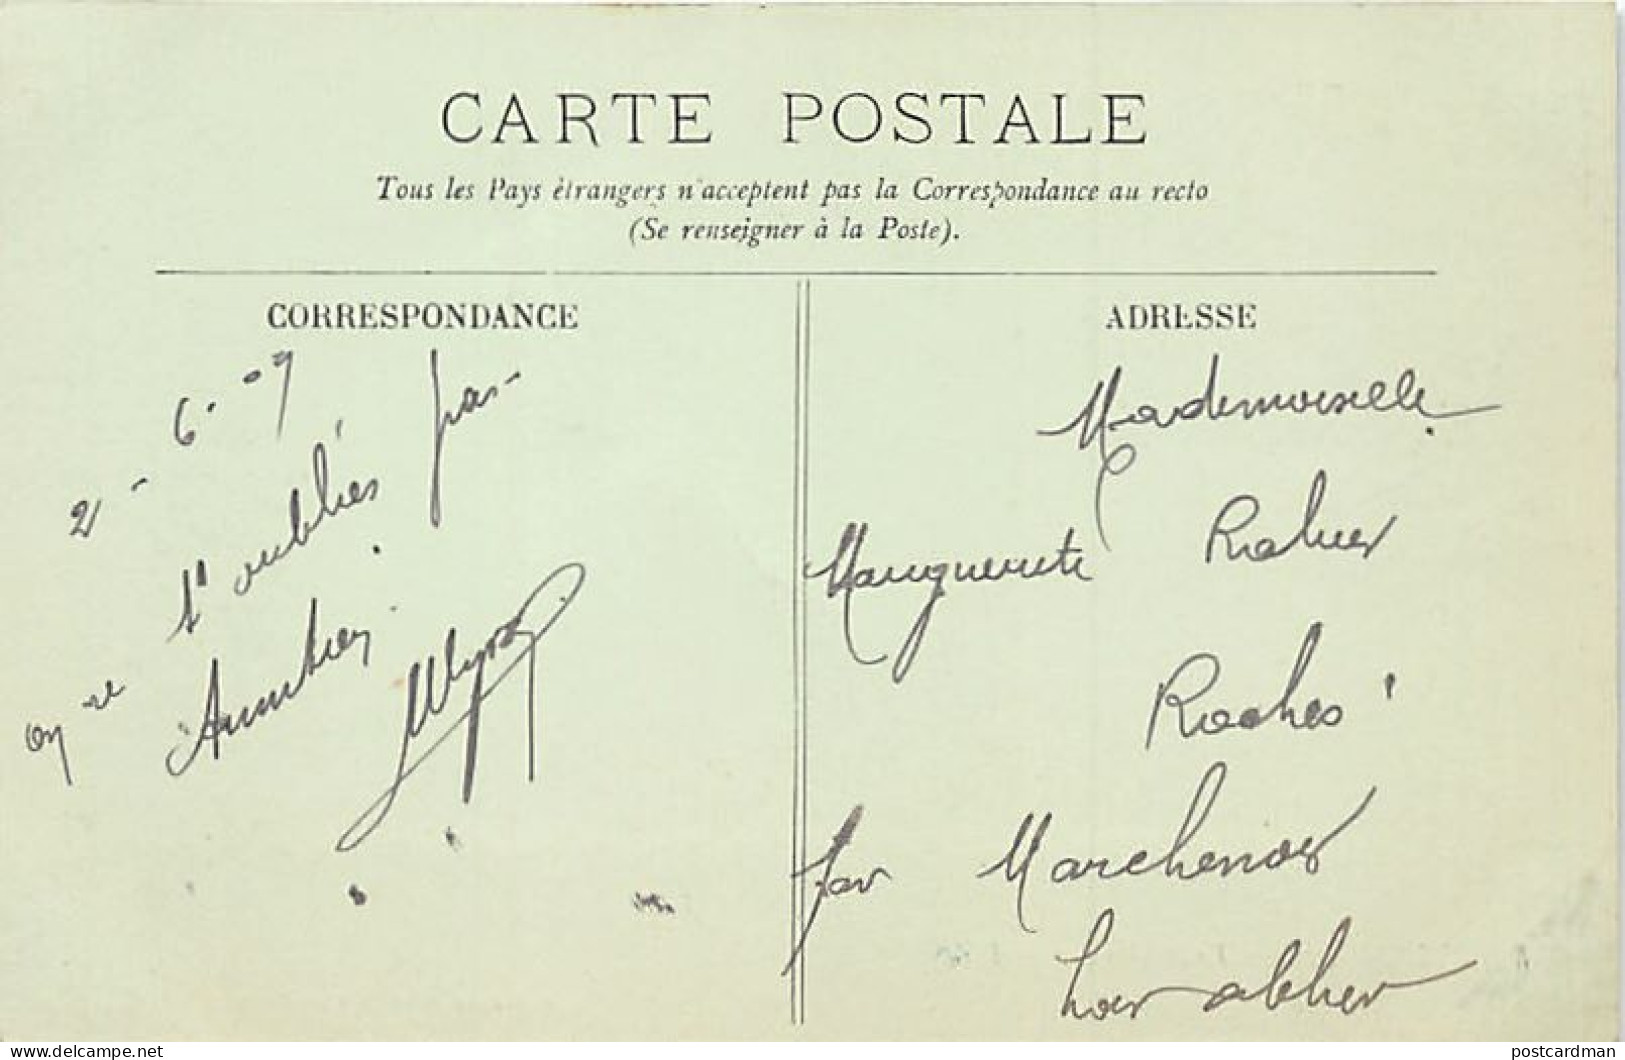 CARTE POSTALE
Tous les Pays étrangers n'acceptent pas la Correspondance au recto
(Se renseigner à la Poste).
CORRESPONDANCE
2 - 6 - 07
on ne t'oubliés pas -
ADRESSE
Mademoiselle
Marguerite
Roches
par Marchenoir
Loir
postcardman